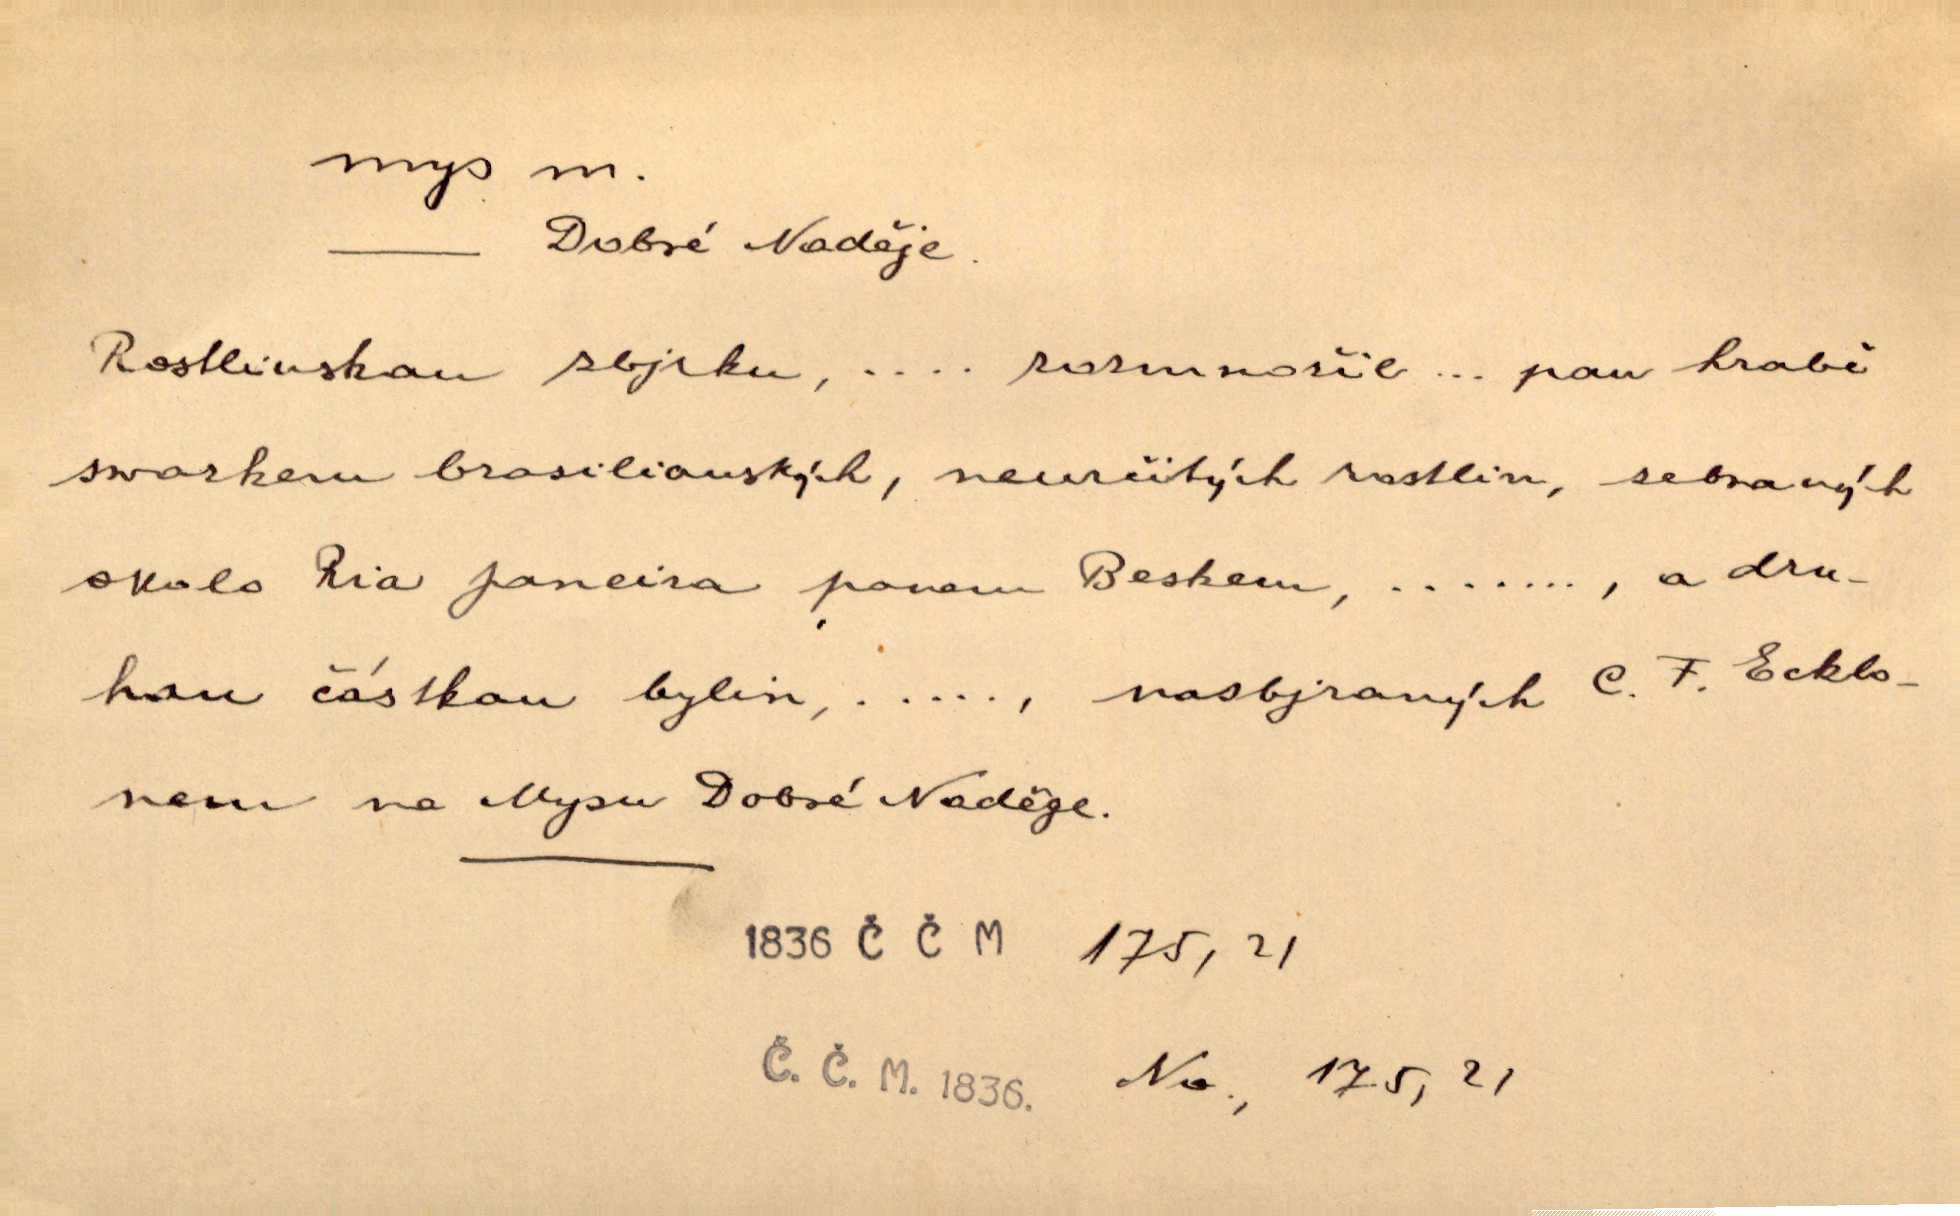 mys m.
— Dobré Naděje.
Rostlinskau zbjrku, .... rozmnožil ... pan hrabě
swazkem brasilianských, neurčitých rostlin, sebraných
okolo Ria Janeira panem Beskem, ........, a dru-
hau částkau bylin, ....., nasbjraných C. F. Ecklo-
nem na Mysu Dobré Naděge.
1836 Č Č M 175, 21
Č. Č. M. 1836. No., 175, 21